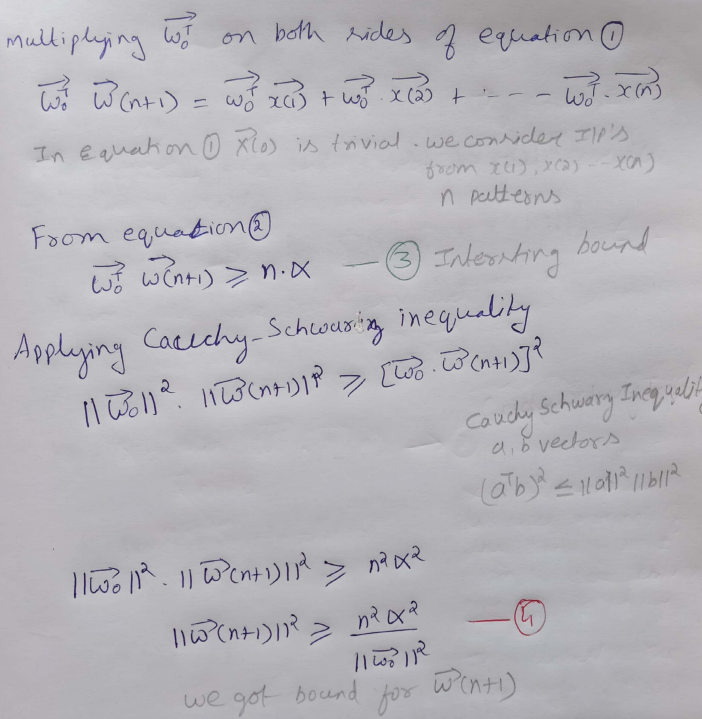 multiplying w₀ᵀ on both sides of equation ①
w₀ᵀ w(n+1) = w₀ᵀ x(1) + w₀ᵀ. x(2) + - - - - w₀ᵀ. x(n)
In Equation ① x(0) is trivial. we consider I/P's
from x(1), x(2) --- x(n)
n patterns
From equation ②
w₀ᵀ w(n+1) ≥ n.α — ③ Intersting bound
Applying Cauchy-Schwaring inequality
||w₀||². ||w(n+1)||² ≥ [w₀. w(n+1)]²
Cauchy Schwarz Inequality
a, b vectors
(aᵀb)² ≤ ||a||² ||b||²
||w₀||². ||w(n+1)||² ≥ n²α²
||w(n+1)||² ≥ n²α² / ||w₀||² — ④
we got bound for w(n+1)